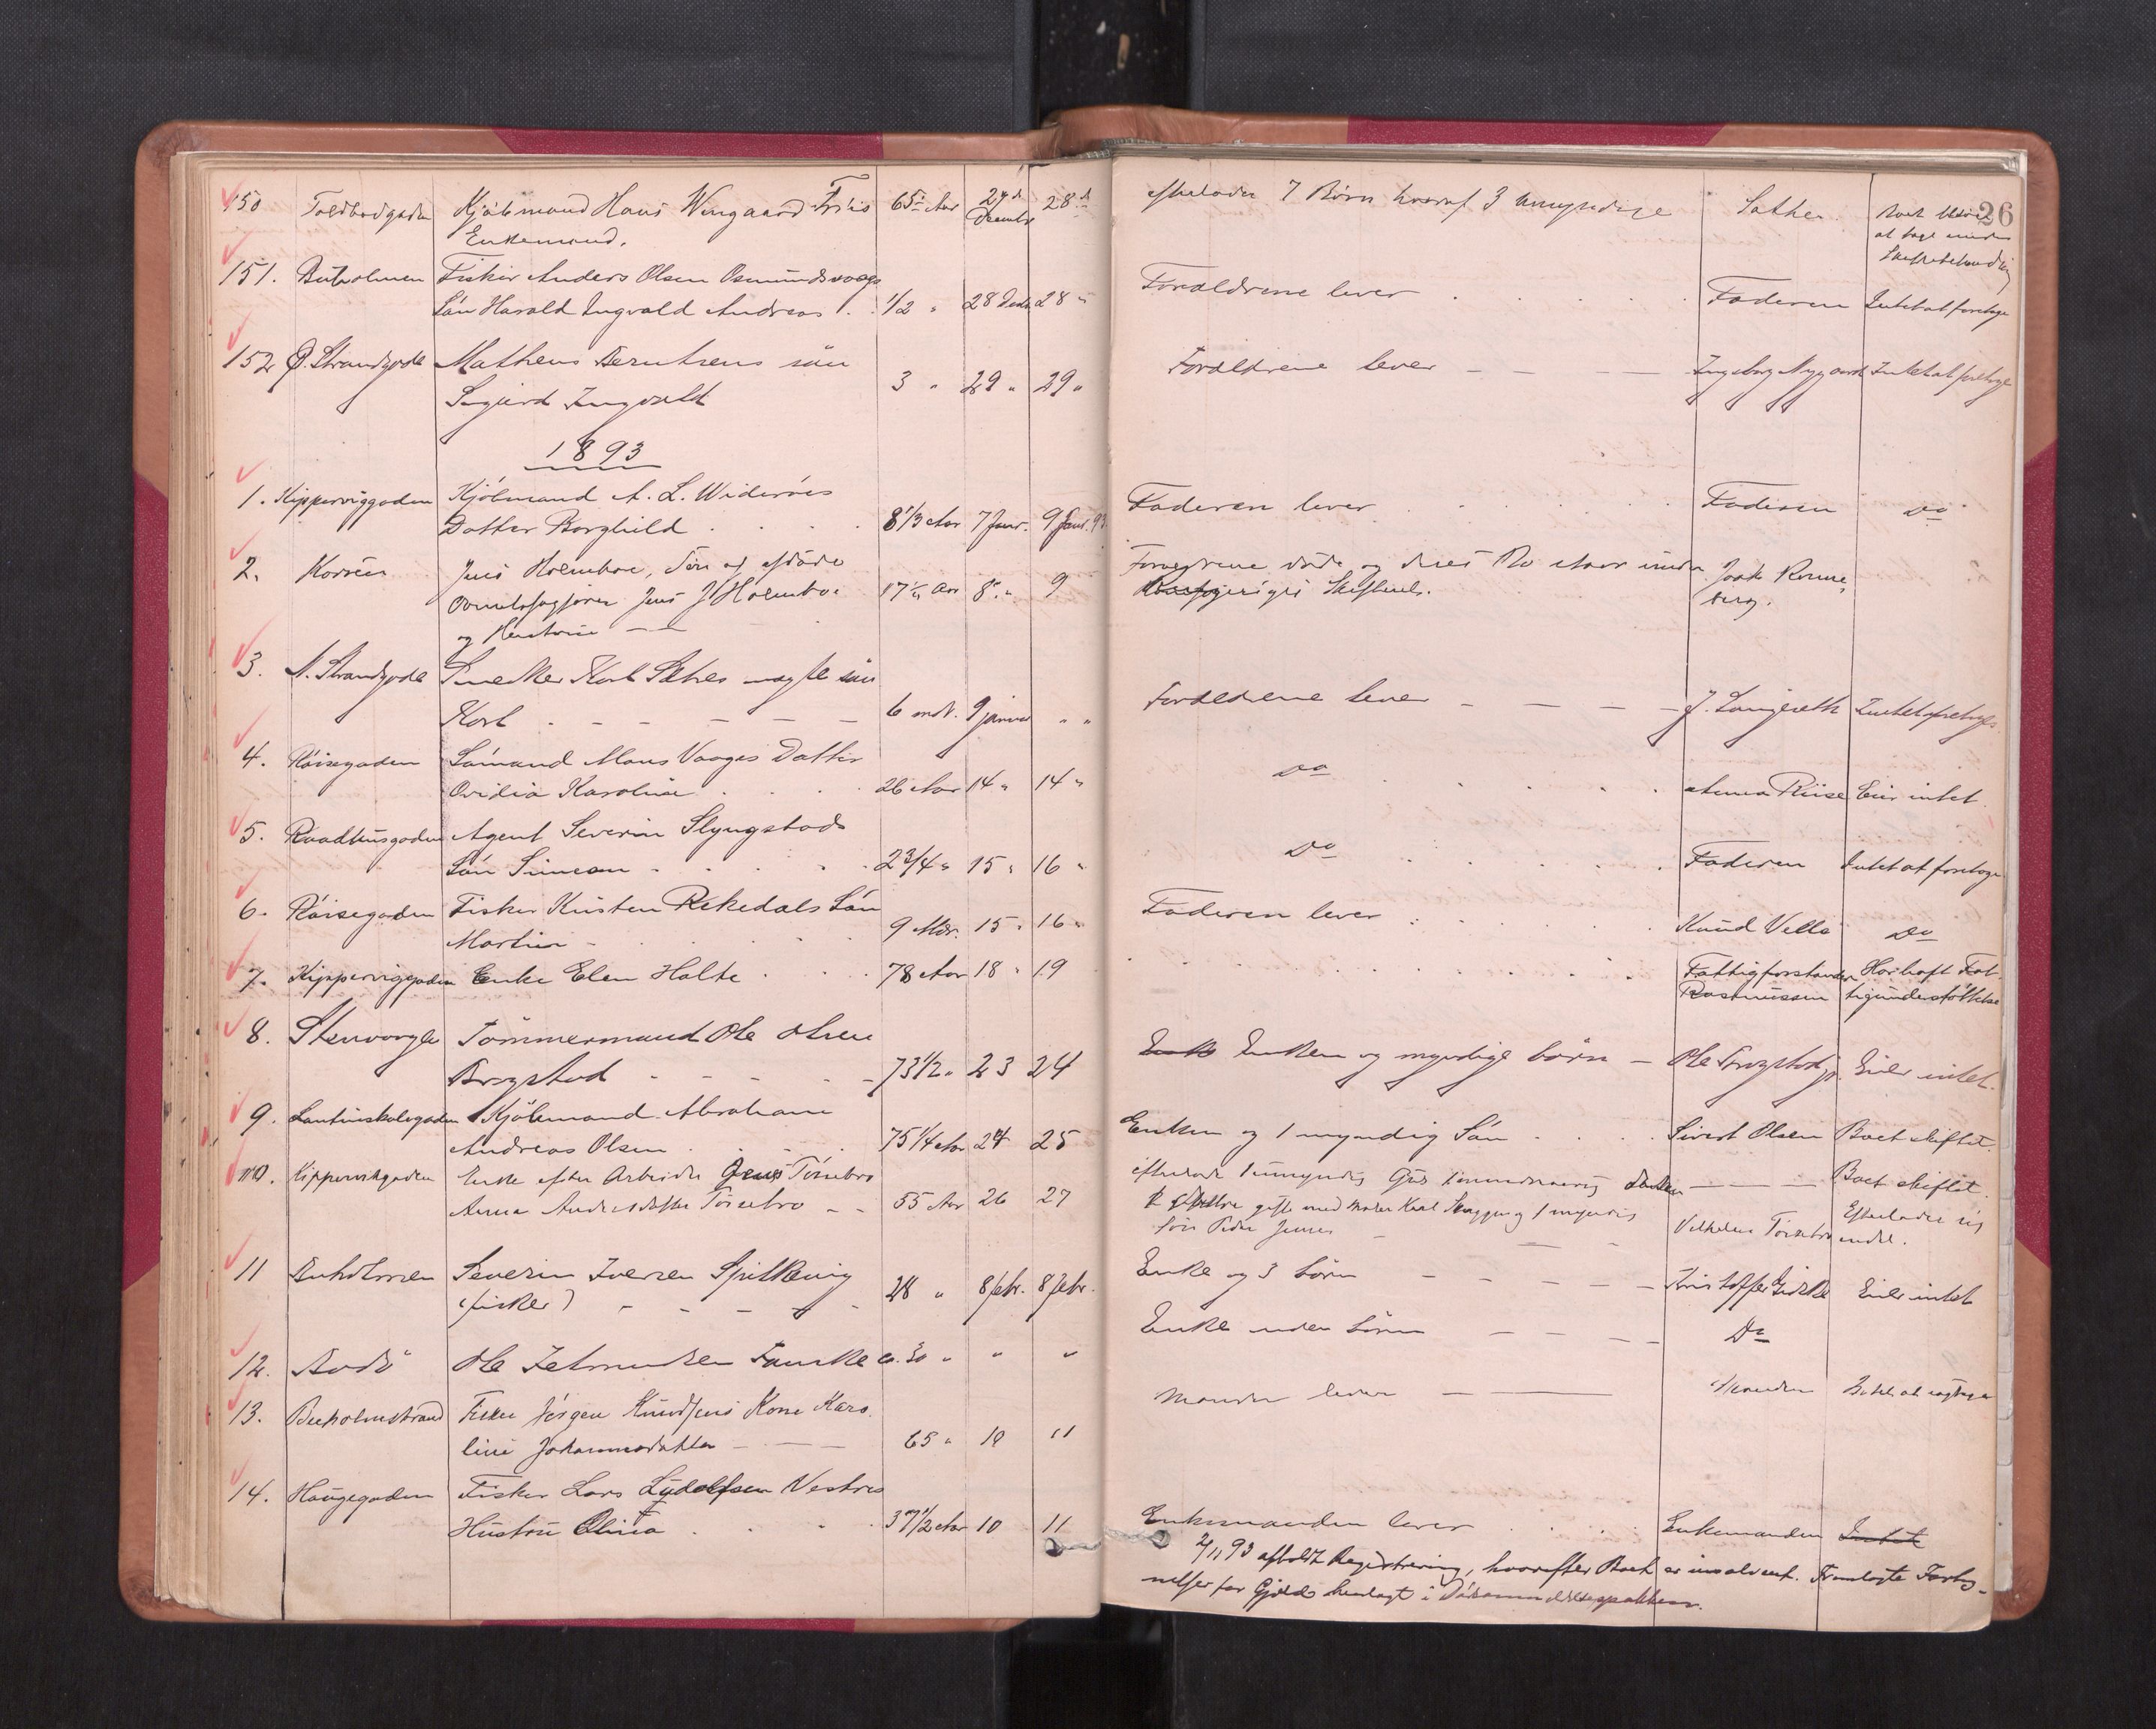 26
150 Toldbodgaden Kjøbmand Hans Wingaard Friis 65 Aar 27de Decembr 28de efterlader 7 Børn hvoraf 3 umyndige Sather.
Enkemand.
at tage under
Skiftebehandling
151. Buholmen Fisker Anders Olsen Osmundsvaags
Søn Harald Ingvald Andreas 1/2 " 28 Decbr 28 " Forældrene lever Faderen Intet at foretage
152 Ø. Strandgade Matheus Berntsens søn
Sigurd Ingvald 3 " 29 " 29 " Forældrene lever Ingeborg Nygaard Intet at foretage
1893
1. Kipperviggaden Kjøbmand A. L. Widerøes
Datter Borghild 8 1/3 Aar 7 Janr. 9 Janr. 93. Faderen lever Faderen Do
2. Korsen Jens Holmboe, Søn af afdøde
Overretssagfører Jens J Holmboe 17 Aar 8 " 9 Forældrene døde og deres Bo staar under Skiftebeh. Joak Ronneberg.
og Hustru
3. N. Strandgade Snedker Karl Sætres søn
Karl 6 mdr. 9 januar " " Forældrene lever Intet
4. Røisegaden Sømand Mons Vaages Datter
Ovidia Karoline 26 Aar 14 " 14 " Do Anna Riise Eier intet
5. Raadhusgaden Agent Severin Slyngstads
Søn Simeon 2 3/4 " 15 " 16 " Do Faderen Intet at foretage
6. Røisegaden Fisker Kristen Rekedals Søn
Martin 9 Mdr. 15 " 16 " Faderen lever Knud Vella Do
7. Kipperviggaden Enke Elen Holte 78 Aar 18 " 19 Fattigforstander Har havt Fat-
Rasmussen tigunderstøttelse
8. Stenvaagen Tømmermand Ole Olsen
Brogstad 73 1/2 " 23 24 Enke Enken og myndige børn Ole Brogstad jr. Eier intet.
9. Latinskolegaden Kjøbmand Abraham
Andreas Olsen 75 1/4 Aar 24 25 Enken og 1 myndig Søn Sivert Olsen Boet skiftet.
10. Kippervikgaden Enke efter Arbeider Jens Tørsebro
Anna Andersdatter Tørsebro 55 Aar 26 27 Boet skiftet.
gift med Maler Karl og 1 myndig
søn Peder Jensen Vilhelm Tørsebro Efterlader sig
intet.
11 Buholmen Severin Iversen Spilkevig
(fisker) 28 " 8 febr. 8 febr. Enke og 3 børn Kristoffer Giske Eier intet
12. Ole Jetmundsen Fauske ca. 30 " " " Enke uden børn Do
13. Buholmstrand Fisker Jørgen Knudsens Kone Karo-
line Johannesdatter 65 " 10 11 Manden lever Manden Intet at iagttage
14. Haugegaden Fisker Lars Lydolfsen Vestres
Hustru Olina 37 1/2 Aar 10 11 Enkemanden lever Enkemanden Intet
2/11 93 afholdt Registrering, hvorefter Boet er insolvent. Fremlagte Forteg-
nelser for Gjæld henlagt i